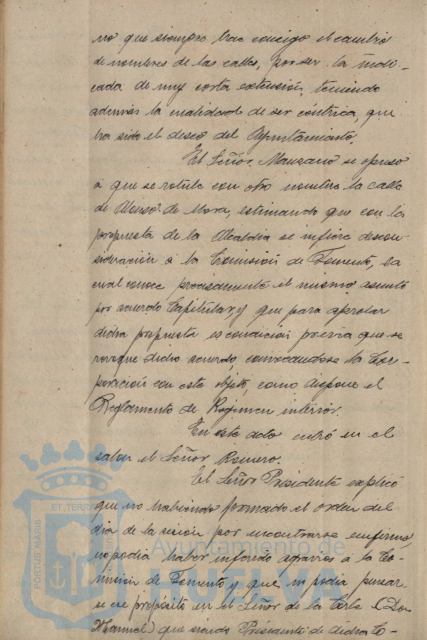 rio que siempre trae consigo el cambio
de nombres de las calles, por ser la indi-
cada de muy corta extensión, teniendo
además la cualidad de ser céntrica, que
ha sido el deseo del Ayuntamiento.
El Señor Manzano se opuso
a que se rotule con otro nombre la calle
de Alonso de Mora, estimando que con la
propuesta de la Alcaldía se infiere descon-
sideración a la Comisión de Fomento, la
cual conoce precisamente el mismo asunto
por acuerdo Capitular, y que para aprobar
dicha propuesta es condición previa que se
revoque dicho acuerdo, convocándose la Cor-
poración con este objeto, como dispone el
Reglamento de Régimen interior.
En este acto entró en el
salón el Señor Romero.
El Señor Presidente explicó
que no habiendo formado el orden del
día de la sesión por encontrarse enfermo,
no podía haber inferido agravios a la Co-
misión de Fomento y que ni podía pensar-
se ese propósito en el Señor de la Corte (Don
Manuel) que siendo Presidente de dicha Co-
PORTUS MARIS
ET TERRAE
Ayuntamiento de
HUELVA